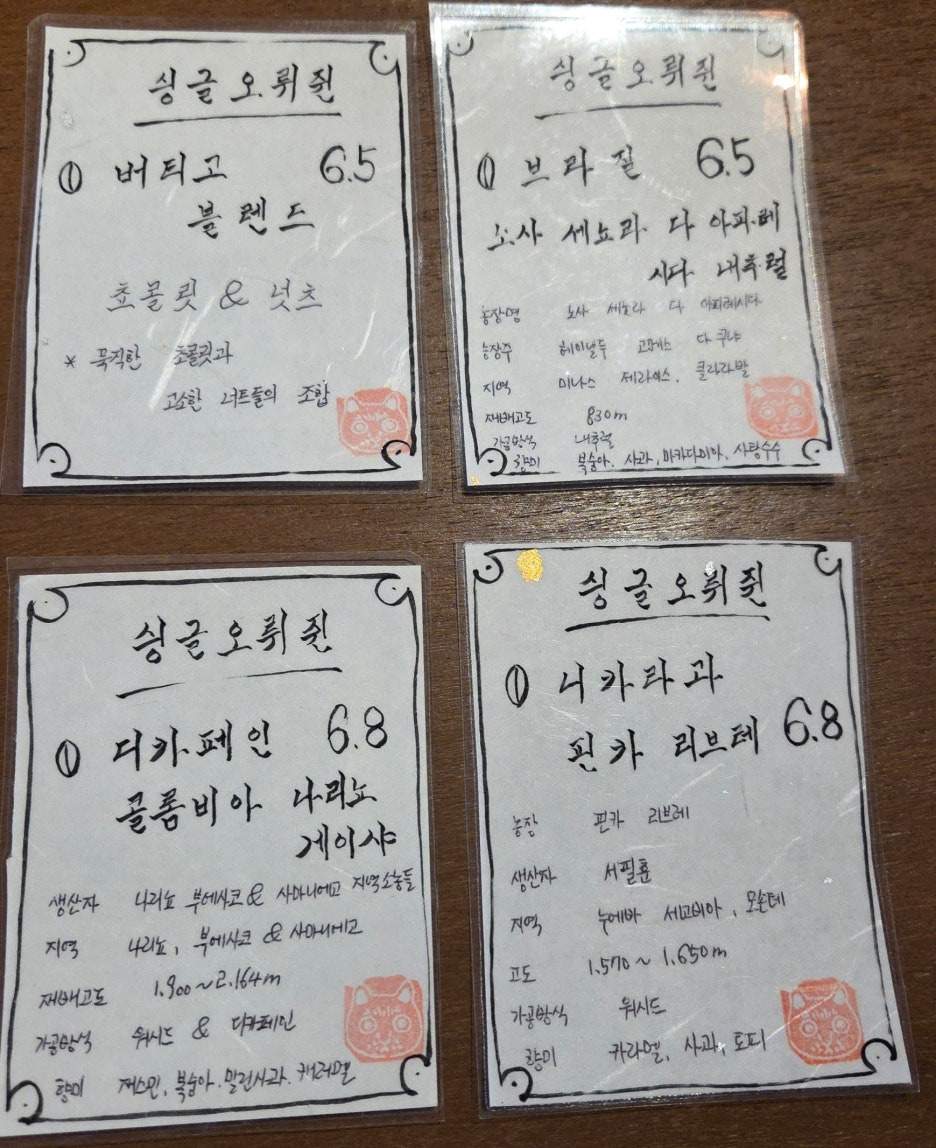 싱글오뤼쥔
버티고 6.5
블렌드
쵸콜릿 & 넛츠
* 묵직한 초콜릿과
고소한 너트들의 조합
싱글오뤼쥔
브라질 6.5
노사 세뇨라 다 아파레
시다 내추럴
농장명 노사 세뇨라 다 아파레시다
농장주 헤이날두 고메스 다 쿠냐
지역 미나스 제라이스,
재배고도 830m
가공방식 내추럴
향미 복숭아, 사과, 마카다미아, 사탕수수
싱글오뤼쥔
디카페인 6.8
콜롬비아 나리뇨
게이샤
생산자 나리뇨 부에사코 & 사마니에고 지역소농들
지역 나리뇨, 부에사코 & 사마니에고
재배고도 1.900~2.164m
가공방식 워시드 & 디카페인
향미 재스민, 복숭아, 말린사과, 캐러멜
싱글오뤼쥔
니카라과
핀카 리브레 6.8
농장 핀카 리브레
생산자 서필훈
지역 누에바 세고비아, 모손테
고도 1.570~1.650m
가공방식 워시드
향미 카라멜, 사과, 토피